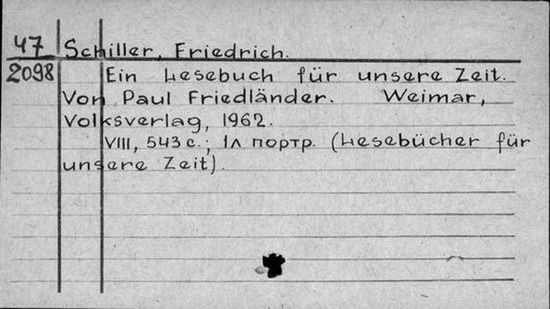 47 Schiller, Friedrich.
2098 Ein Lesebuch für unsere Zeit.
Von Paul Friedländer. Weimar,
Volksverlag, 1962.
VIII, 543 с.; 1л портр. (Lesebücher für
unsere Zeit).